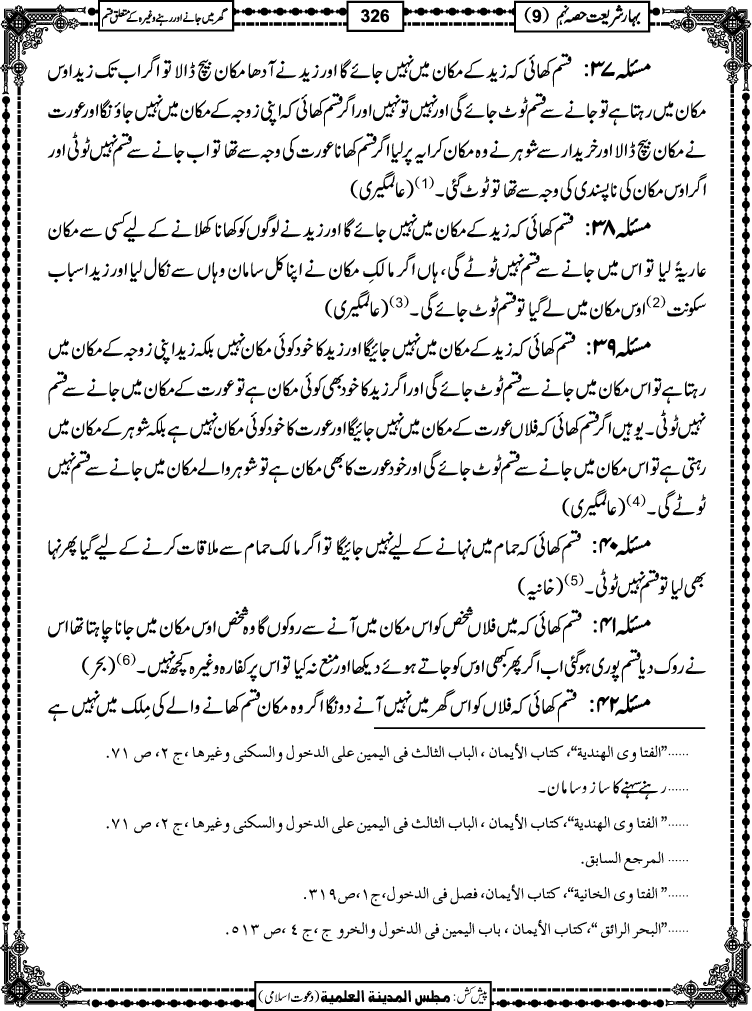 بہار شریعت حصہ نہم (9)
326
گھر میں جانے اور رہنے وغیرہ کے متعلق قسم
مسئلہ ۳۷: قسم کھائی کہ زید کے مکان میں نہیں جائے گا اور زید نے آدھا مکان بیچ ڈالا تو اگر اب تک زید اوس
مکان میں رہتا ہے تو جانے سے قسم ٹوٹ جائے گی اور نہیں تو نہیں اور اگر قسم کھائی کہ اپنی زوجہ کے مکان میں نہیں جاؤنگا اور عورت
نے مکان بیچ ڈالا اور خریدار سے شوہر نے وہ مکان کرایہ پر لیا اگر قسم کھانا عورت کی وجہ سے تھا تو اب جانے سے قسم نہیں ٹوٹی اور
اگر اوس مکان کی ناپسندی کی وجہ سے تھا تو ٹوٹ گئی۔(1) (عالمگیری)
مسئلہ ۳۸: قسم کھائی کہ زید کے مکان میں نہیں جائے گا اور زید نے لوگوں کو کھانا کھلانے کے لیے کسی سے مکان
عاریۃً لیا تو اس میں جانے سے قسم نہیں ٹوٹے گی، ہاں اگر مالکِ مکان نے اپنا کل سامان وہاں سے نکال لیا اور زید اسباب
سکونت(2) اوس مکان میں لے گیا تو قسم ٹوٹ جائے گی۔(3) (عالمگیری)
مسئلہ ۳۹: قسم کھائی کہ زید کے مکان میں نہیں جائیگا اور زید کا خود کوئی مکان نہیں بلکہ زید اپنی زوجہ کے مکان میں
رہتا ہے تو اس مکان میں جانے سے قسم ٹوٹ جائے گی اور اگر زید کا خود بھی کوئی مکان ہے تو عورت کے مکان میں جانے سے قسم
نہیں ٹوٹی۔ یوہیں اگر قسم کھائی کہ فلاں عورت کے مکان میں نہیں جائیگا اور عورت کا خود کوئی مکان نہیں ہے بلکہ شوہر کے مکان میں
رہتی ہے تو اس مکان میں جانے سے قسم ٹوٹ جائے گی اور خود عورت کا بھی مکان ہے تو شوہر والے مکان میں جانے سے قسم نہیں
ٹوٹے گی۔(4) (عالمگیری)
مسئلہ ۴۰: قسم کھائی کہ حمام میں نہانے کے لیے نہیں جائیگا تو اگر مالک حمام سے ملاقات کرنے کے لیے گیا پھر نہا
بھی لیا تو قسم نہیں ٹوٹی۔(5) (خانیہ)
مسئلہ ۴۱: قسم کھائی کہ میں فلاں شخص کو اس مکان میں آنے سے روکوں گا وہ شخص اوس مکان میں جانا چاہتا تھا اس
نے روک دیا قسم پوری ہوگئی اب اگر پھر کبھی اوس کو جاتے ہوئے دیکھا اور منع نہ کیا تو اس پر کفارہ وغیرہ کچھ نہیں۔(6) (بحر)
مسئلہ ۴۲: قسم کھائی کہ فلاں کو اس گھر میں نہیں آنے دونگا اگر وہ مکان قسم کھانے والے کی مِلک میں نہیں ہے
......"الفتاوی الهندية"، كتاب الأيمان ، الباب الثالث فی اليمين علی الدخول والسكنی وغيرها ،ج ۲، ص ۷۱.
......رہنے سہنے کا ساز وسامان۔
......" الفتاوی الهندية"،كتاب الأيمان ، الباب الثالث فی اليمين علی الدخول والسكنی وغيرها ،ج ۲، ص ۷۱.
...... المرجع السابق.
......" الفتاوی الخانية"، كتاب الأيمان، فصل فی الدخول،ج۱،ص۳۱۹.
......"البحر الرائق "،كتاب الأيمان ، باب اليمين فی الدخول والخروج ،ج ٤ ،ص ٥١٣.
پیش کش: مجلس المدينة العلمية (دعوت اسلامی)